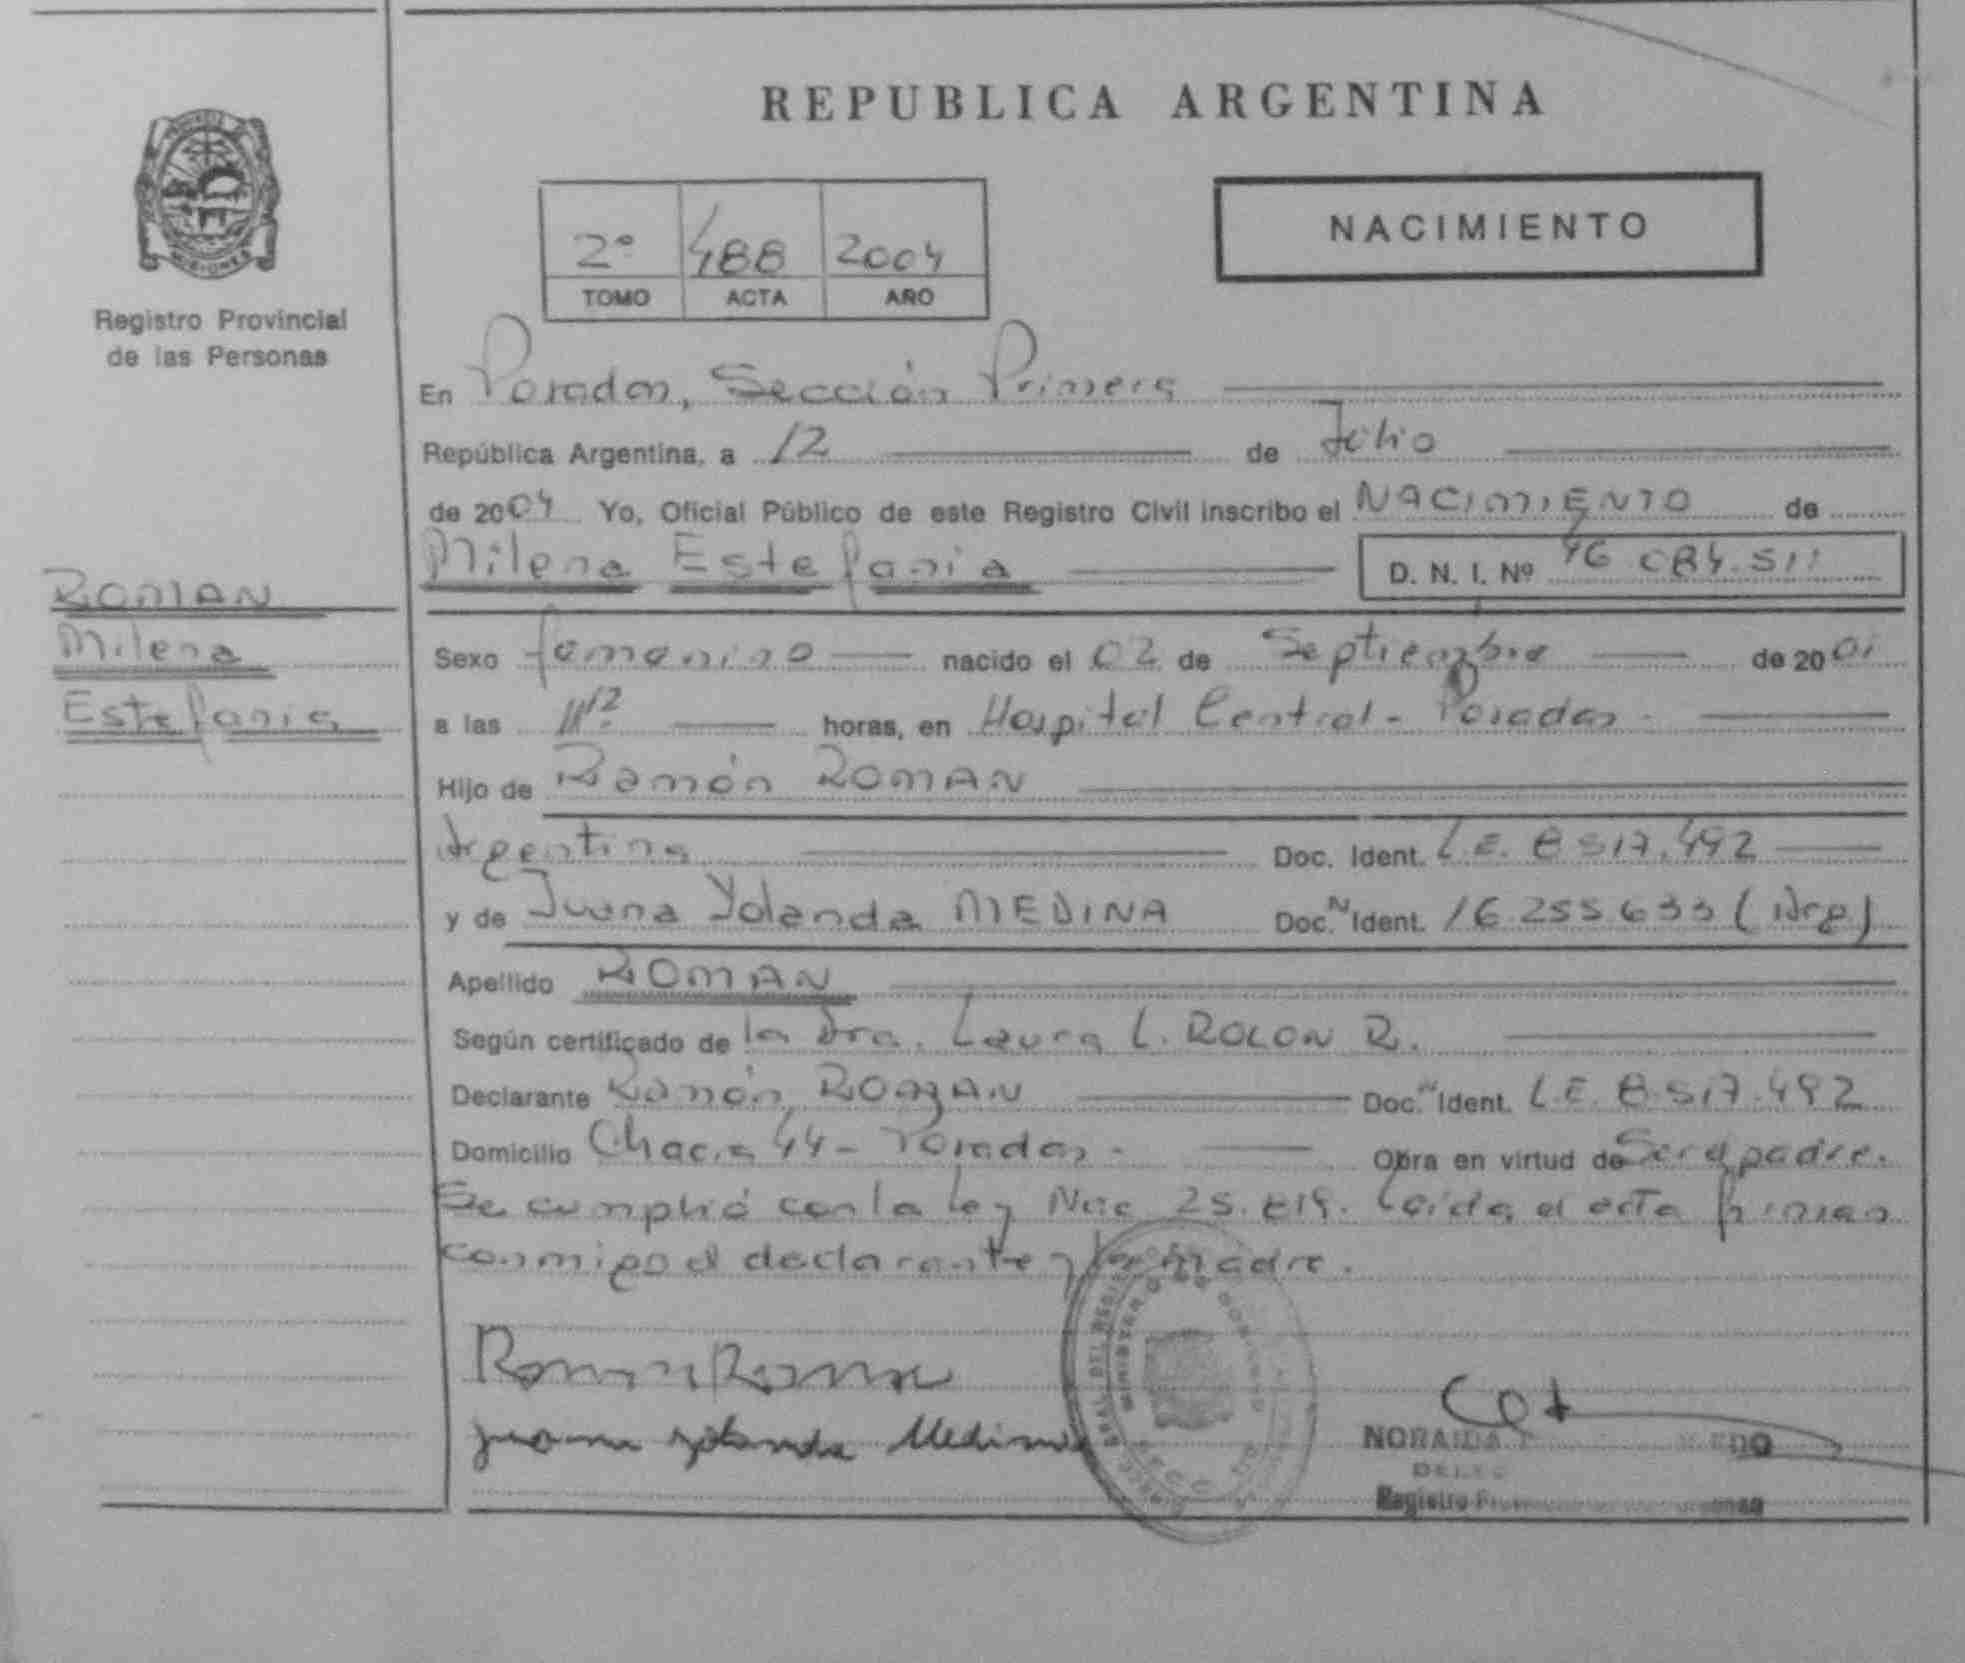 REPUBLICA ARGENTINA
NACIMIENTO
2º 488 2004
TOMO ACTA AÑO
MISIONES
Registro Provincial
de las Personas
En Posadas, Sección Primera
República Argentina, a 12 de Julio
de 2004 Yo, Oficial Público de este Registro Civil inscribo el NACIMIENTO de
Milena Estefania D. N. I. Nº 46 084.511
ROMAN
Milena
Estefania
Sexo femenino nacido el 02 de Septiembre de 2001
a las horas, en Hospital Central - Posadas -
Hijo de Ramón ROMAN
Argentina Doc. Ident. L.E. 8.517.492
y de Juana Yolanda MEDINA Doc. N Ident. 16.255.633 (Arg)
Apellido ROMAN
Según certificado de la Dra. Laura L. ROLON R.
Declarante Ramón ROMAN Doc. N Ident. L.E. 8.517.492
Domicilio Chacra 44 - Posadas - Obra en virtud de Ser el padre.
Se cumplió con la ley Nac 25.819. Leída el acta firman
conmigo el declarante y la madre.
Juana Yolanda Medina
NORAIDA
Registro